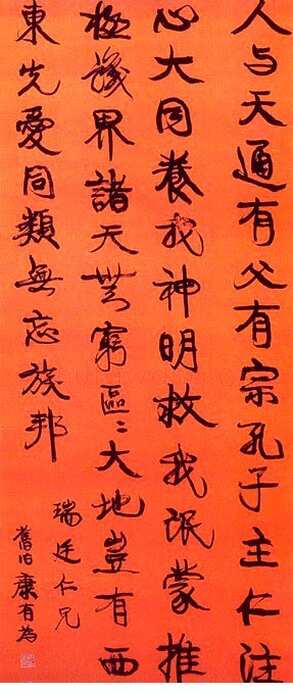 人与天通有父有宗孔子主仁注
心大同養我神明救我氓蒙推
極識界諸天無窮區〻大地豈有西
東先愛同類無忘族邦
瑞廷仁兄
康有為